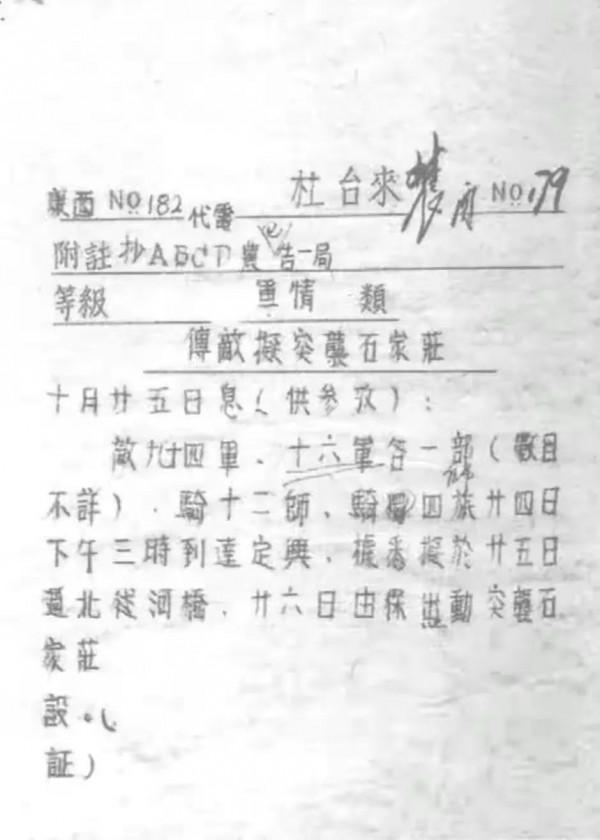 杜台來 No. 179
東西 No 182 代電
附註抄ABCD 告一局
等級 軍情 類
傳敵擬突襲石家莊
十月廿五日息(供參攷):
敵九十四軍、十六軍各一部(數目
不詳)、騎十二師、騎四旅廿四日
下午三時到達定興、據悉擬於廿五日
過北徐河橋、廿六日由保出動突襲石
家莊
証)